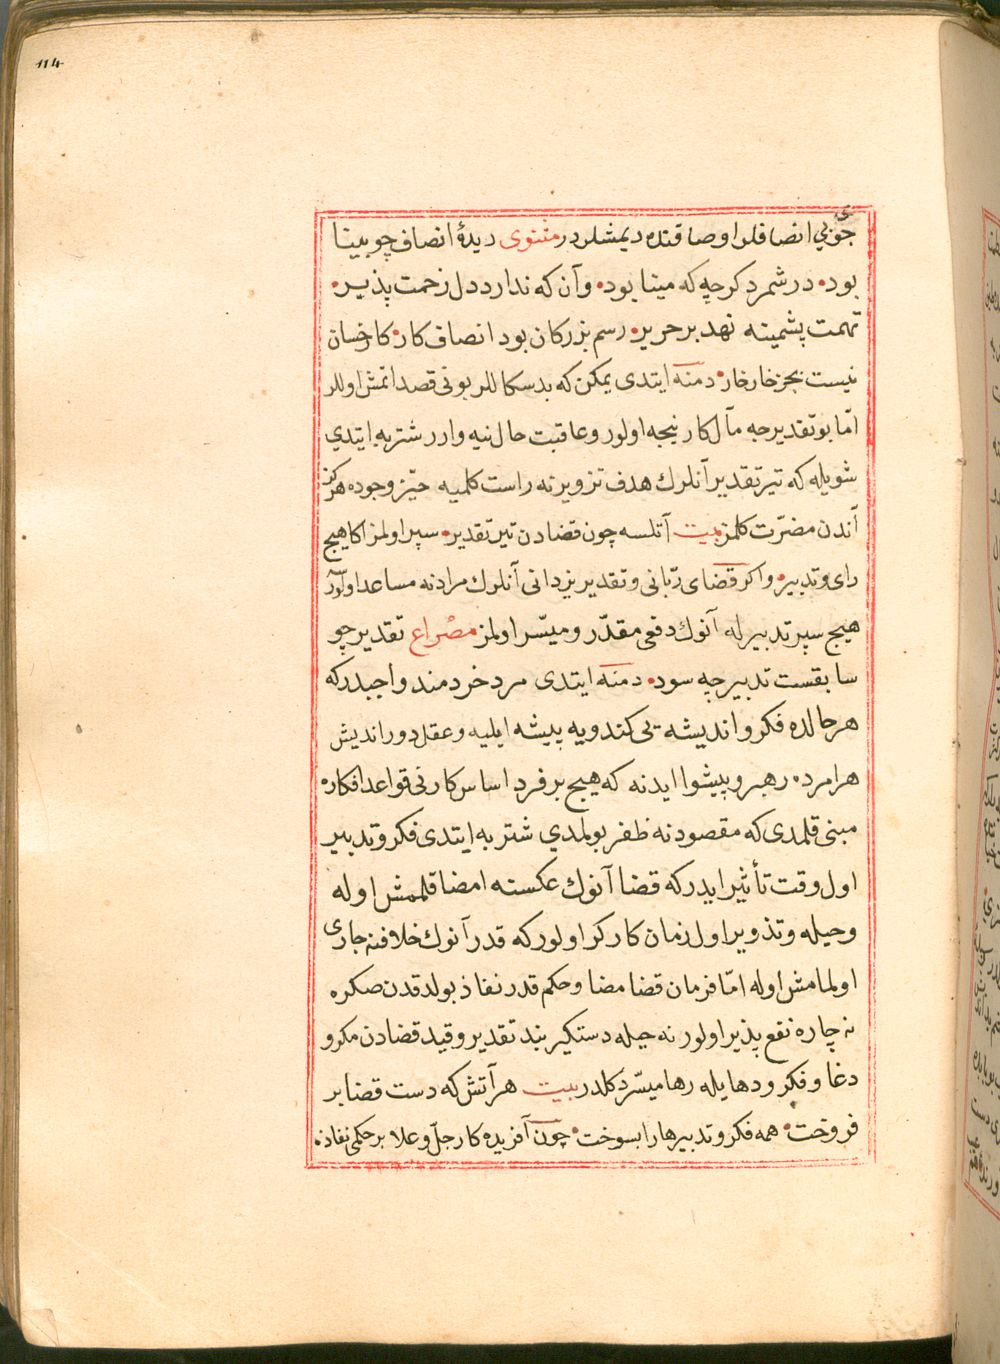 114
جوبی انصافلرا وصافنده دیمشلردر مثنوی دیدۀ انصاف چو بینا
بود۰ در شمرد کرچه که مینا بود۰ وآن که ندارد دل زحمت پذیر۰
تهمت پشمینه نهد بر حریر۰ رسم بزرکان بود انصاف کار۰ کار خسان
نیست بجز خار خار۰ دمنه ایتدی یمکن که بدسکاللر بونی قصد اتمش اوللر
امّا بو تقدیرجه مآل کار نیجه اولور وعاقبت حال نیه وارر شتربه ایتدی
شویله که تیر تقدیر آنلرك هدف تزویرنه راست کلمیه حیّز وجوده هرکز
آندن مضرّت کلمز بیت آتلسه چون قضادن تیر تقدیر۰ سپر اولمز اکا هیچ
رای وتدبیر۰ واکر قضای ربّانی وتقدیر یزدانی آنلرك مرادنه مساعد اولور
هیچ سپر تدبیرله آنوك دفعی مقدّر ومیسّر اولمز مصراع تقدیر چو
سابقست تدبیر چه سود۰ دمنه ایتدی مرد خردمند واجبدرکه
هر حالده فکر واندیشه یی کندویه پیشه ایلیه وعقل دوراندیش
هر امرده رهبر وپیشوا ایدنه که هیچ بر فرد اساس کارنی قواعد افکاره
مبنی قلمدی که مقصودنه ظفر بولمدی شتربه ایتدی فکر وتدبیر
اول وقت تأثیر ایدرکه قضا آنوك عکسنه امضا قلممش اوله
وحیله وتذویر اول زمان کارکر اولورکه قدر آنوك خلافنه جاری
اولمامش اوله امّا فرمان قضا مضا وحکم قدر نفاذ بولدقدن صکره
نه چاره نفع پذیر اولور نه حیله دستکیر بند تقدیر وقید قضادن مکر و
دغا وفکر ودها یله رها میسّر دکلدر بیت هر آتش که دست قضا بر
فروخت۰ همه فکر وتدبیرها را بسوخت۰ چون آفریده کار جلّ وعلا بر حکمی نفاذه